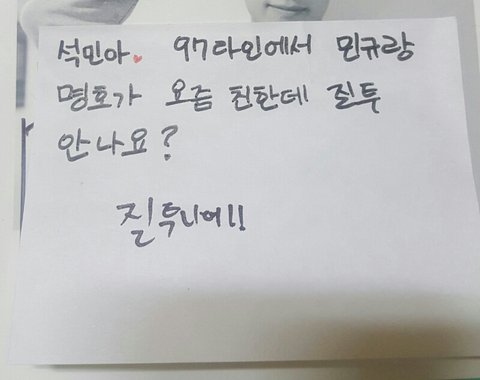 석민아♥ 97라인에서 민규랑
명호가 요즘 친한데 질투
안나요?
질투나여!!